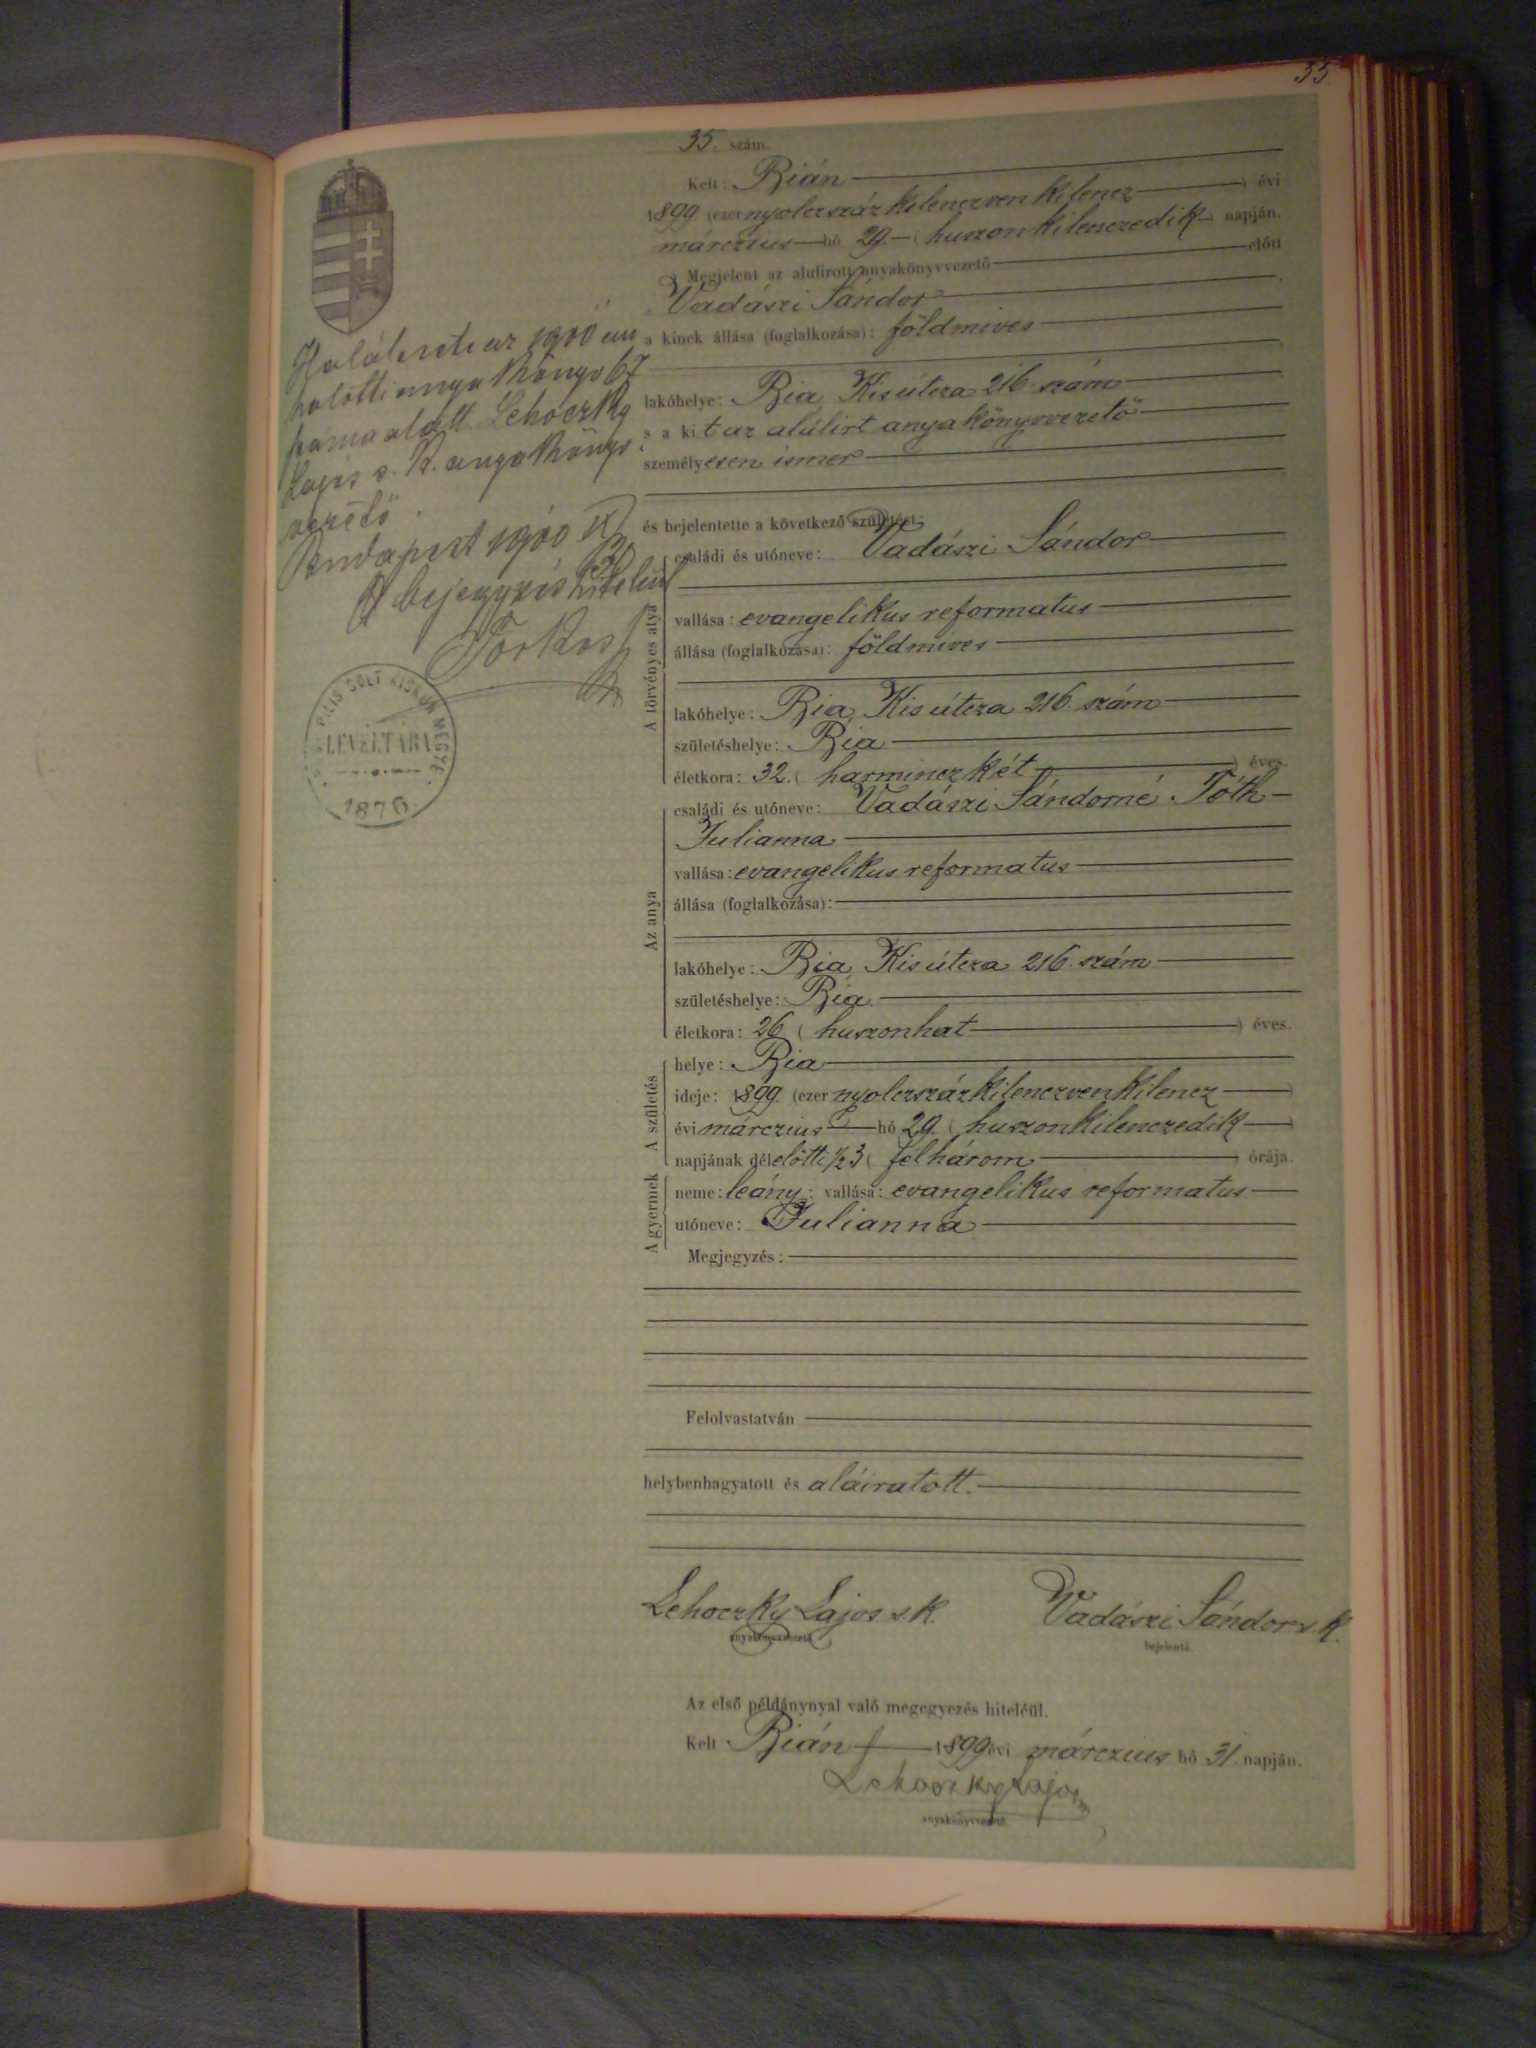 35
35. szám.
Kelt: Bián évi
1899 (ezer nyolczszáz kilenczven kilencz
márczius hó 29. (huszonkilenczedik) napján.
Megjelent az alulirott anyakönyvvezető előtt
Vadászi Sándor
a kinek állása (foglalkozása): földmives
lakóhelye: Bia, Kis útcza 216. szám
s a kit az alúlirt anyakönyvvezető
személyesen ismer
és bejelentette a következő születést:
A törvényes atya
családi és utóneve: Vadászi Sándor
vallása: evangelikus reformatus
állása (foglalkozása): földmives
lakóhelye: Bia, Kis útcza 216. szám
születéshelye: Bia
életkora: 32. (harmincz két) éves.
Az anya
családi és utóneve: Vadászi Sándorné Tóth
Julianna
vallása: evangelikus reformatus
állása (foglalkozása):
lakóhelye: Bia, Kis útcza 216. szám
születéshelye: Bia.
életkora: 26 (huszonhat) éves.
A születés
helye: Bia
ideje: 1899. (ezer nyolczszáz kilenczven kilencz)
évi márczius hó 29. (huszonkilenczedik)
napjának délelőtti ½3 (félhárom) órája.
A gyermek
neme: leány; vallása: evangelikus reformatus
utóneve: Julianna
Megjegyzés:
Felolvastatván
helybenhagyatott és aláiratott.
Lehoczky Lajos s.k. Vadászi Sándor s.k.
anyakönyvvezető. bejelentő.
Az első példánynyal való megegyezés hiteléül.
Kelt Bián 1899 évi márczius hó 31. napján.
Lehoczky Lajos
anyakönyvvezető.
Halálesete az 1900 évi
halotti anyakönyv 67
szama alatt. Lehoczky
Lajos s. k. anyakönyv
vezető.
Budapest 1900
A bejegyzés hiteléül
Torkos
PILIS SOLT KISKUN MEGYE
LEVÉLTÁRA
1876.